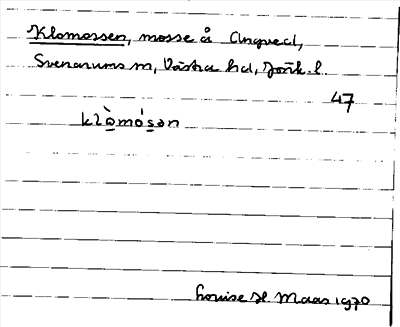 Klomossen, mosse å Angved,
Svenarums sn, Västra hd, Jönk. l.
47
klò̲mó̲sən
Louise H Maas 1970